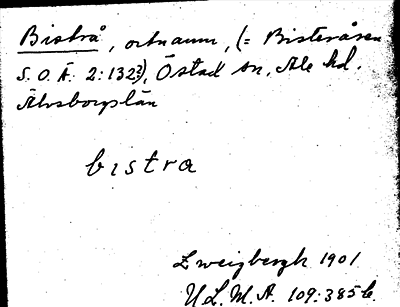 Bistrå, ortnamn, (= Bisteråsen
S.O.Ä. 2:132?), Östad sn, Ale hd.
Älvsborgs län
bistra
Zweigbergk 1901
U.L.M.A. 109:385 b.